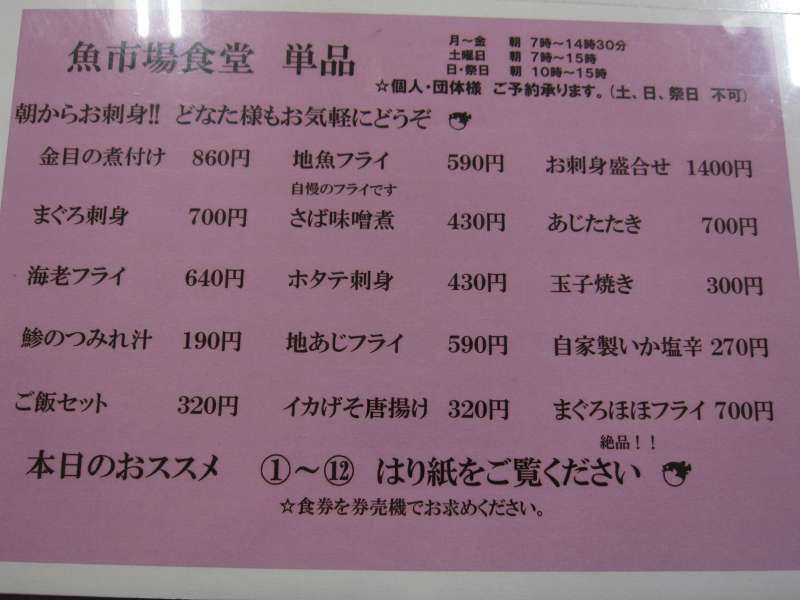 魚市場食堂 単品
月～金 朝 7時～14時30分
土曜日 朝 7時～15時
日・祭日 朝 10時～15時
☆個人・団体様 ご予約承ります。(土、日、祭日 不可)
朝からお刺身!! どなた様もお気軽にどうぞ
金目の煮付け 860円 地魚フライ 590円 お刺身盛合せ 1400円
自慢のフライです
まぐろ刺身 700円 さば味噌煮 430円 あじたたき 700円
海老フライ 640円 ホタテ刺身 430円 玉子焼き 300円
鯵のつみれ汁 190円 地あじフライ 590円 自家製いか塩辛 270円
ご飯セット 320円 イカげそ唐揚げ 320円 まぐろほほフライ 700円
絶品！！
本日のおススメ ①～⑫ はり紙をご覧ください
☆食券を券売機でお求めください。